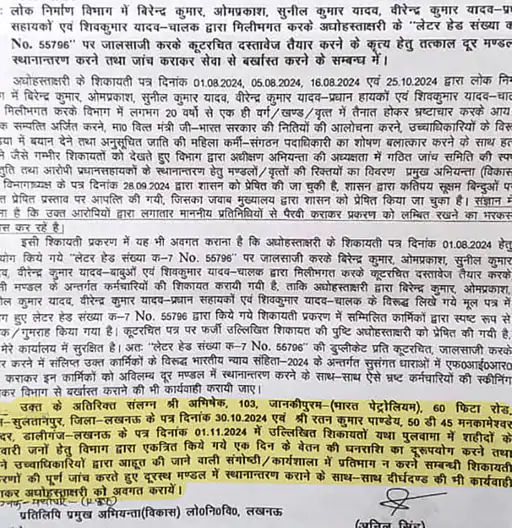 लोक निर्माण विभाग में बिरेन्द्र कुमार, ओमप्रकाश, सुनील कुमार यादव, वीरेन्द्र कुमार यादव–प्र
सहायकों एवं शिवकुमार यादव–चालक द्वारा मिलीभगत करके अधोहस्ताक्षरी के "लेटर हेड संख्या क
No. 55796" पर जालसाजी करके कूटरचित दस्तावेज तैयार करने के कृत्य हेतु तत्काल दूर मण्डल
स्थानान्तरण करने तथा जांच कराकर सेवा से बर्खास्त करने के सम्बन्ध में।
अधोहस्ताक्षरी के शिकायती पत्र दिनांक 01.08.2024, 05.08.2024, 16.08.2024 एवं 25.10.2024 द्वारा लोक निम
ग में बिरेन्द्र कुमार, ओमप्रकाश, सुनील कुमार यादव, वीरेन्द्र कुमार यादव–प्रधान हायकों एवं शिवकुमार यादव–चाल
मिलीभगत करके विभाग में लगभग 20 वर्षों से एक ही वर्ग/खण्ड/वृत्त में तैनात होकर भ्रष्टाचार करके आय
क सम्पत्ति अर्जित करने, मा0 वित्त मंत्री जी–भारत सरकार की नितियों की आलोचना करने, उच्चाधिकारियों के विरू
डया में बयान देने तथा अनुसूचित जाति की महिला कर्मी–संगठन पदाधिकारी का शोषण बलात्कार करने के साथ हत
ने जैसे गम्भीर शिकायतों को देखते हुए विभाग द्वारा अधीक्षण अभियन्ता की अध्यक्षता में गठित जांच समिति की स्पष
तुति तथा आरोपी प्रधानसहायकों के स्थानान्तरण हेतु मण्डलों/वृत्तों की रिक्तयों का विवरण प्रमुख अभियन्ता (विकास)
विभागाध्यक्ष के पत्र दिनांक 28.09.2024 द्वारा शासन को प्रेषित की जा चुकी है, शासन द्वारा कतिपय सूक्षम बिन्दुओं पर
त प्रेषित प्रस्ताव पर आपत्ति की गयी, जिसका जवाब मुख्यालय द्वारा शासन को प्रेषित किया जा चुका है। संज्ञान में
ना है कि उक्त आरोपियों द्वारा लगातार माननीय प्रतिनिधियों से पैरवी कराकर प्रकरण को लम्बित रखने का भरकस
ास कर रहें है।
इसी शिकायती प्रकरण में यह भी अवगत कराना है कि अधोहस्ताक्षरी के शिकायती पत्र दिनांक 01.08.2024 हेतु
योग किये गये "लेटर हेड संख्या क–7 No. 55796" पर जालसाजी करके बिरेन्द्र कुमार, ओमप्रकाश, सुनील कुमार
व, वीरेन्द्र कुमार यादव–बाबुओं एवं शिवकुमार यादव–चालक द्वारा मिलीभगत करके कूटरचित दस्तावेज तैयार करके
ती मण्डल के अन्तर्गत कर्मचारियों की शिकायत करायी गयी है, ताकि अधोहस्ताक्षरी द्वारा बिरेन्द्र कुमार, ओमप्रकाश,
ील कुमार यादव, वीरेन्द्र कुमार यादव–प्रधान सहायकों एवं शिवकुमार यादव–चालक के विरूद्ध लिखे गये मूल पत्र में
ग हुए लेटर हेड संख्या क–7 No. 55796 द्वारा किये गये शिकायती प्रकरण में सम्मिलित कार्मिकों द्वारा स्पष्ट रूप से
क/गुमराह किया गया है। कूटरचित पत्र पर फर्जी उल्लिखित शिकायत की पुष्टि अधोहस्ताक्षरी को प्रेषित की गयी है,
मेरे कार्यालय में सुरक्षित है। अतः "लेटर हेड संख्या क–7 No. 55796" की डुप्लीकेट प्रति कूटरचित, जालसाजी करके
र करने में संलिप्त उक्त कार्मिकों के विरूद्ध भारतीय न्याय संहिता–2024 के अन्तर्गत सुसंगत धाराओं में एफ0आई0आर0
कराकर इन कार्मिकों को अविलम्ब दूर मण्डल में स्थानान्तरण करने के साथ–साथ ऐसे भ्रष्ट कर्मचारियों की स्कीनिंग
कर विभाग से बर्खास्त कराने की भी कार्यवाही करायी जाए।
उक्त के अतिरिक्त संलग्न श्री अभिषेक, 103, जानकीपुरम–(भारत पेट्रोलियम), 60 फिटा रोड,
–सुलतानपुर, जिला–लखनऊ के पत्र दिनांक 30.10.2024 एवं श्री रतन कुमार पाण्डेय, 50 डी 45 मनकामेश्वर
दर, डालीगंज–लखनऊ के पत्र दिनांक 01.11.2024 में उल्लिखित शिकायतों यथा पुलवामा में शहीदों के
वारी जनों हेतु विभाग द्वारा एकत्रित किये गये एक दिन के वेतन की धनराशि का दुरूपयोग करने तथा
ने उच्चाधिकारियों द्वारा आहूत की जाने वाली संगोष्ठी/कार्यशाला में प्रतिभाग न करने सम्बन्धी शिकायती
रणों की पूर्ण जांच करते हुए दूरस्थ मण्डल में स्थानान्तरण कराने के साथ–साथ दीर्घदण्ड की भी कार्यवाही
ाकर अधोहस्ताक्षरी को अवगत करायें।
प्रतिलिपि प्रमुख अभियन्ता(विकास) लो0नि0वि0, लखनऊ
(अनिल सिंह)